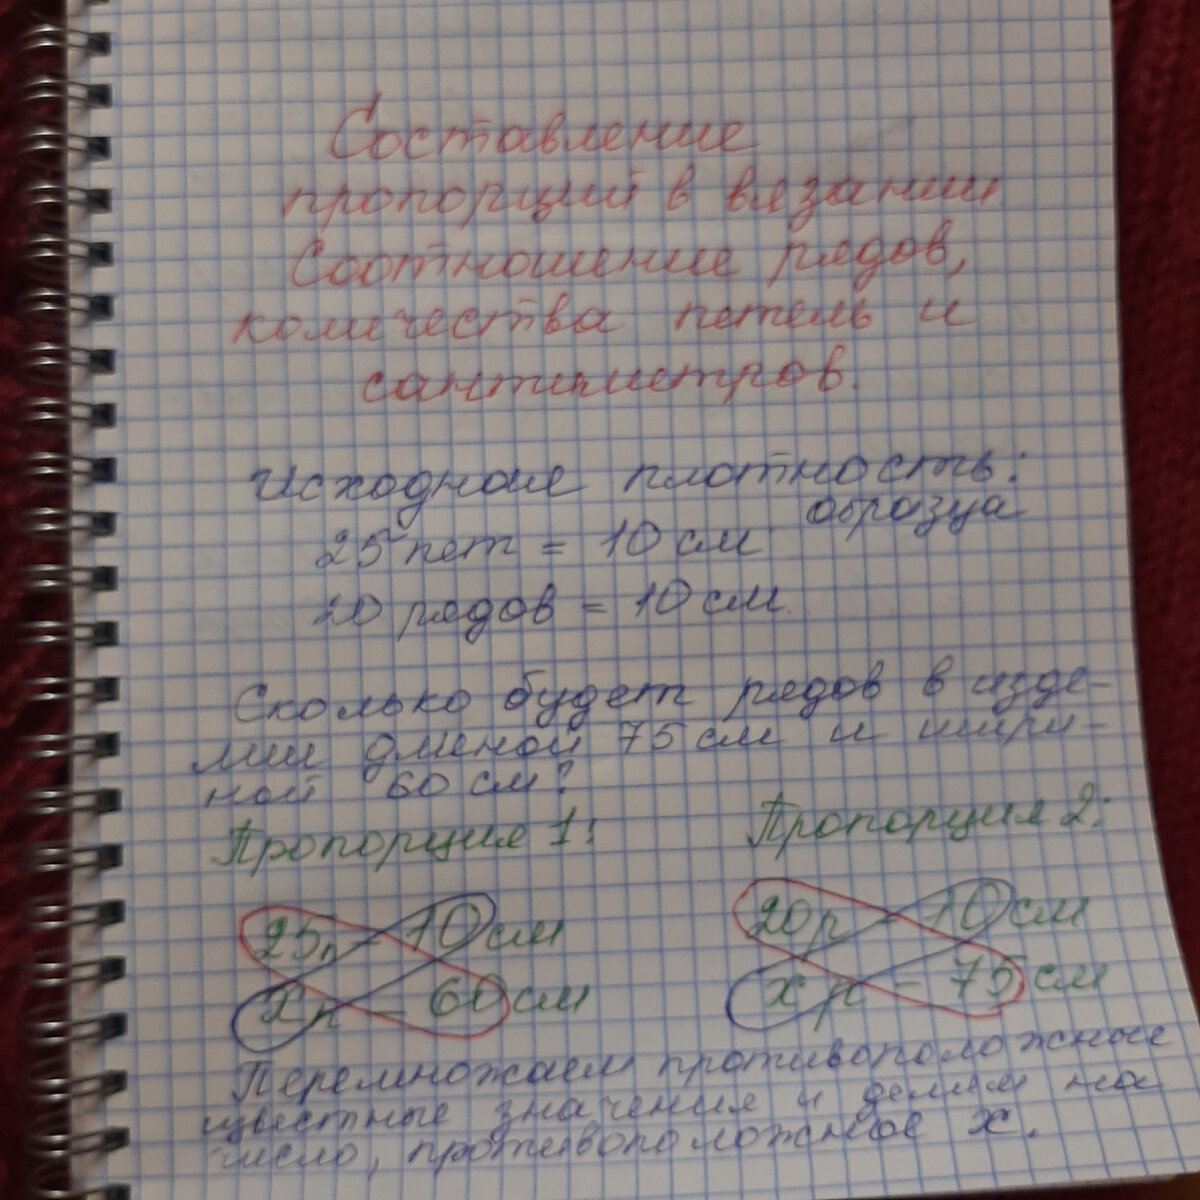 Составление
пропорций в вязании
Соотношение рядов,
количества петель и
сантиметров.
Исходная плотность:
образца
25 пет = 10 см
20 рядов = 10 см.
Сколько будет рядов в изде-
лии длиной 75 см и шири-
ной 60 см?
Пропорция 1: Пропорция 2:
25п – 10 см 20р – 10 см
хп – 60 см х р – 75 см
Перемножаем противоположные
известные значения и делим на
число, противоположное х.